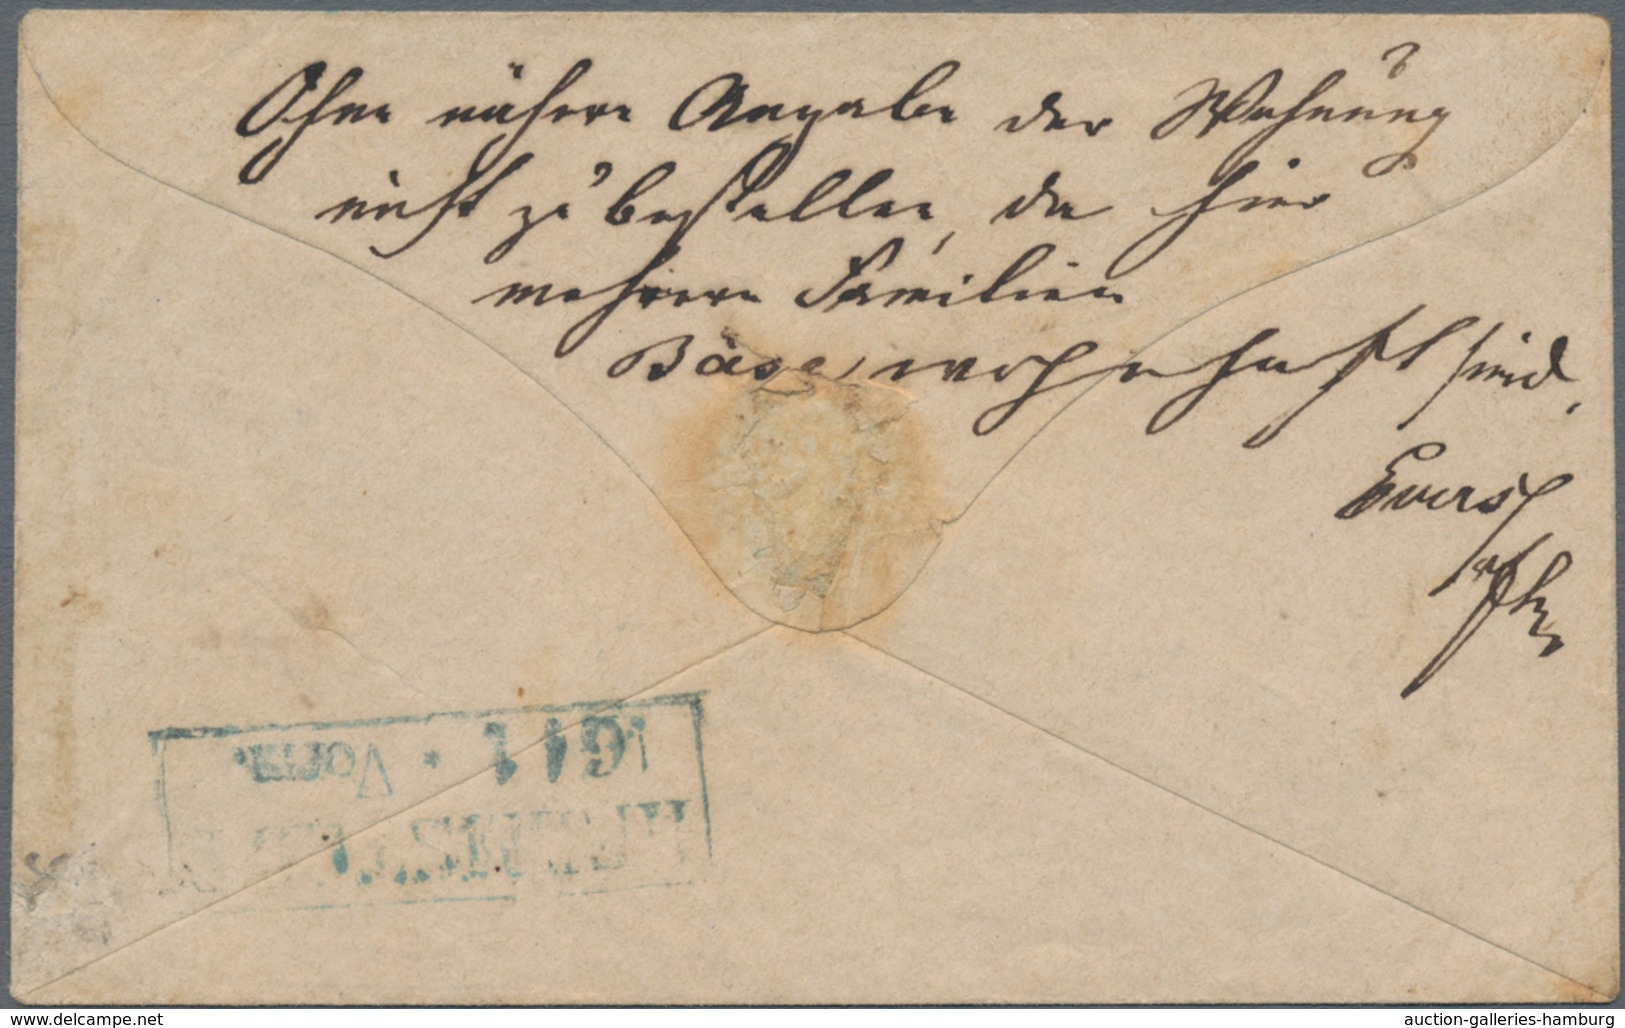 Ohne nähere Angabe der Wohnung
nicht zu bestellen, da hier
mehrere Familien
Bäse, wohnhaft sind.
Evers
1 * Vorm.
www.delcampe.net
auction-galleries-hamburg